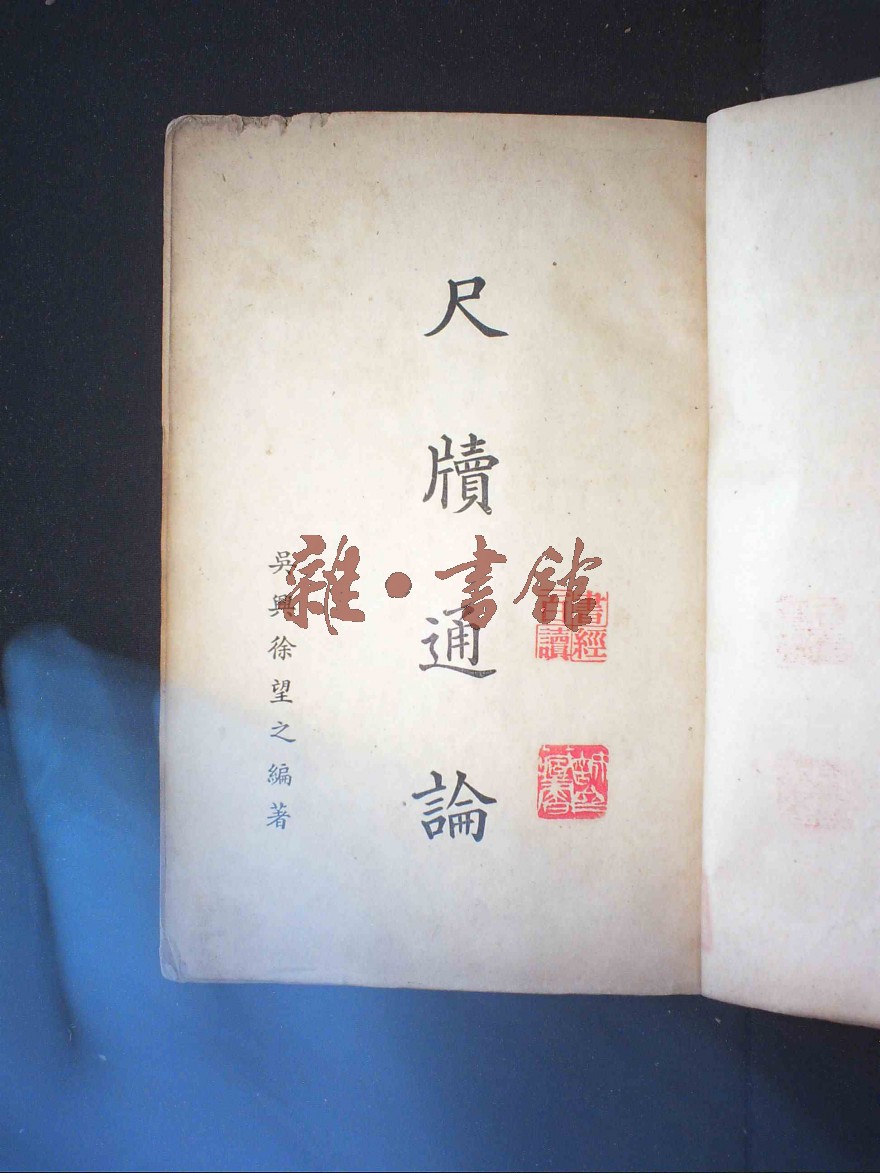 尺牘通論
吳興徐望之編著
雜·書館
書經
讀